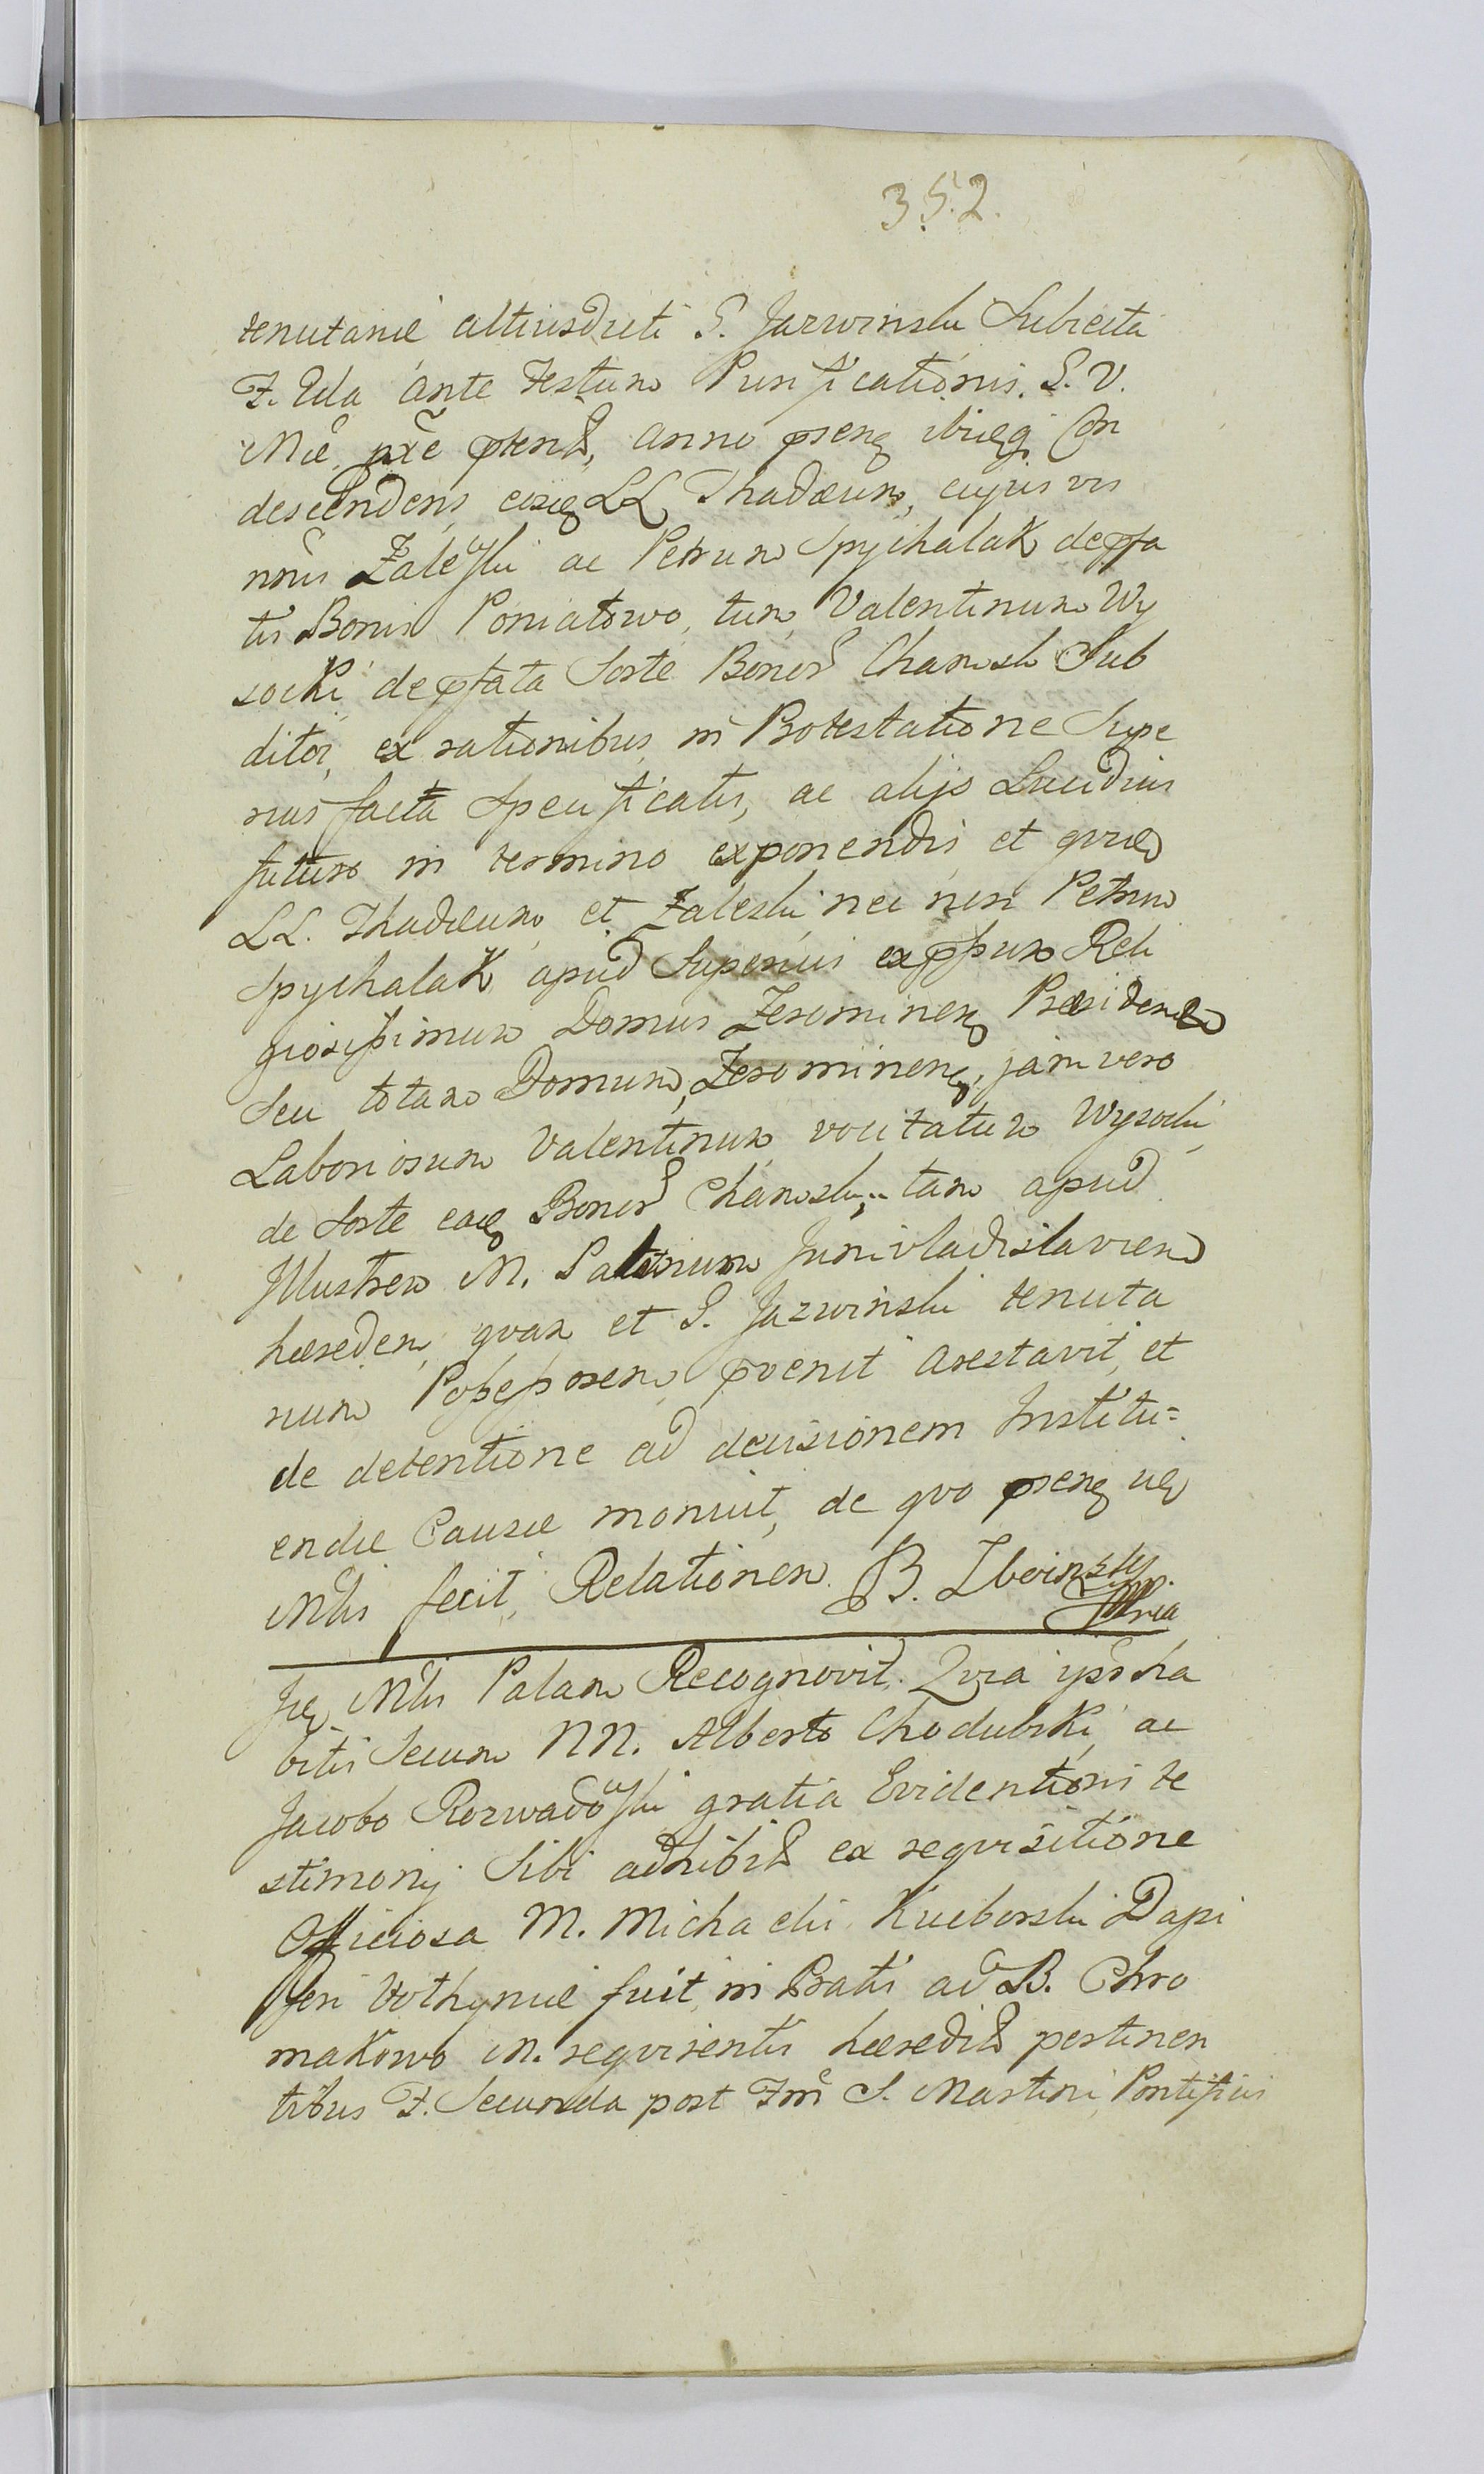 352.
tenutariæ altiusdicti G. Jarwinski Subjecta
F. 2da ante Festum Purificationis. B. V.
Mæ pxe pterit, anno psenq ibidq Con
descendens, eosq LL Thadæum, cujus vis
nois Zaleski ac Petrum Spychalak de pfa
tis Bonis Poniatowo, tum Valentinum Wy
socki de pfata Sorte Bonor Chamsk Sub
ditos, ex rationibus in Protestatione Supe
rius facta Specificatis, ac alijs Lucidius
futuro in termino exponendis et qvid
LL. Thadæum et Zaleski nec non Petrum
Spychalak apud Superius exppum Reli
giosissimum Domus Zerominenq Præsidem
Seu totam Domum Zerominenq, jam vero
Laboriosum Valentinum vocitatum Wysocki
de Sorte eadq Bonor Chamsk, tam apud
Illustrem M. Palatinum Junivladislavien
hæredem, qvam et G. Jazwinski tenuta
rium Possessorem pvenit Arestavit, et
de detentione ad decisionem Institu=
endæ Causæ monuit, de qvo psenq idq
Mlis fecit Relationem. B. Zboinsky
Idq Mlis Palam Recognovit. Qvia ipso ha
bitis Secum NN. Alberto Chodubski, ac
Jacobo Rozwadoski gratia Evidentioris te
stimonij Sibi adhibit ex reqvisitione
Officiosa M. Michaelis Kucborski Dapi
feri Volhyniæ fuit in Pratis ad B. Chro
makowo M. reqvirentis hæredit pertinen
tibus F. Secunda post Fm S. Martini Pontificis